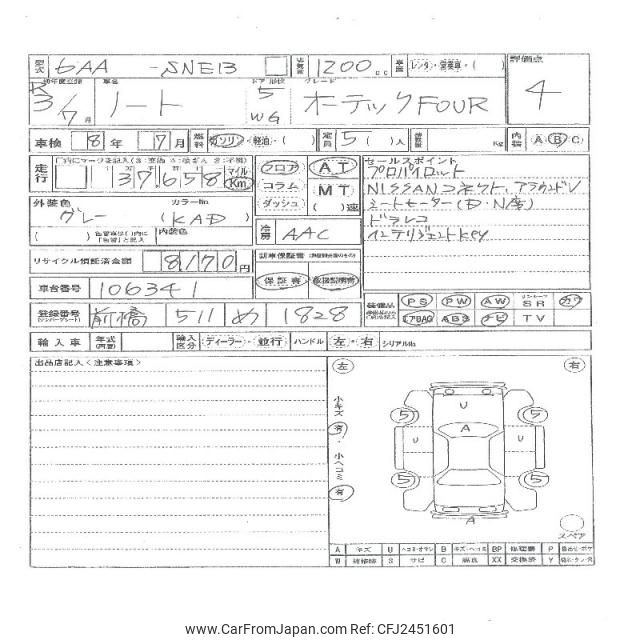 型式 6AA -SNE13 排気量 1200cc 車歴 レンタ・営業車・( ) 評価点
初年度登録 車名 ドア 形状 グレード
R3/7月 ノート 5 WG オーテックFOUR 4
車検 8年 7月 燃料 ガソリン・軽油・( ) 定員 5( )人 積載量 Kg 内装 A B C
走行 37,658 マイル Km フロア コラム ダッシュ AT MT ( )速
セールスポイント
プロパイロット
NISSANコネクト、アラウンドV
シートヒーター(D・N席)
ドラレコ
インテリジェントKey
外装色 カラーNo.
グレー (KAD)
( ) 内装色 冷房 AAC
リサイクル預託済金額 8170円 保証書 取扱説明書
車台番号 106341
装備品 PS PW AW SR カワ
登録番号 前橋 511 め 1828 エアBAG ABS ナビ TV
輸入車 年式 輸入区分 ディーラー・並行 ハンドル 左・右 シリアルNo.
出品店記入<注意事項>
左 右
小キズ 有・小ヘコミ 有
U
5 A 5
U U
5 5
A
スペア
A キズ U B キズ・ヘコミ BP P
W S サビ C 腐食 XX 交換済 Y
www.CarFromJapan.com Ref: CFJ2451601